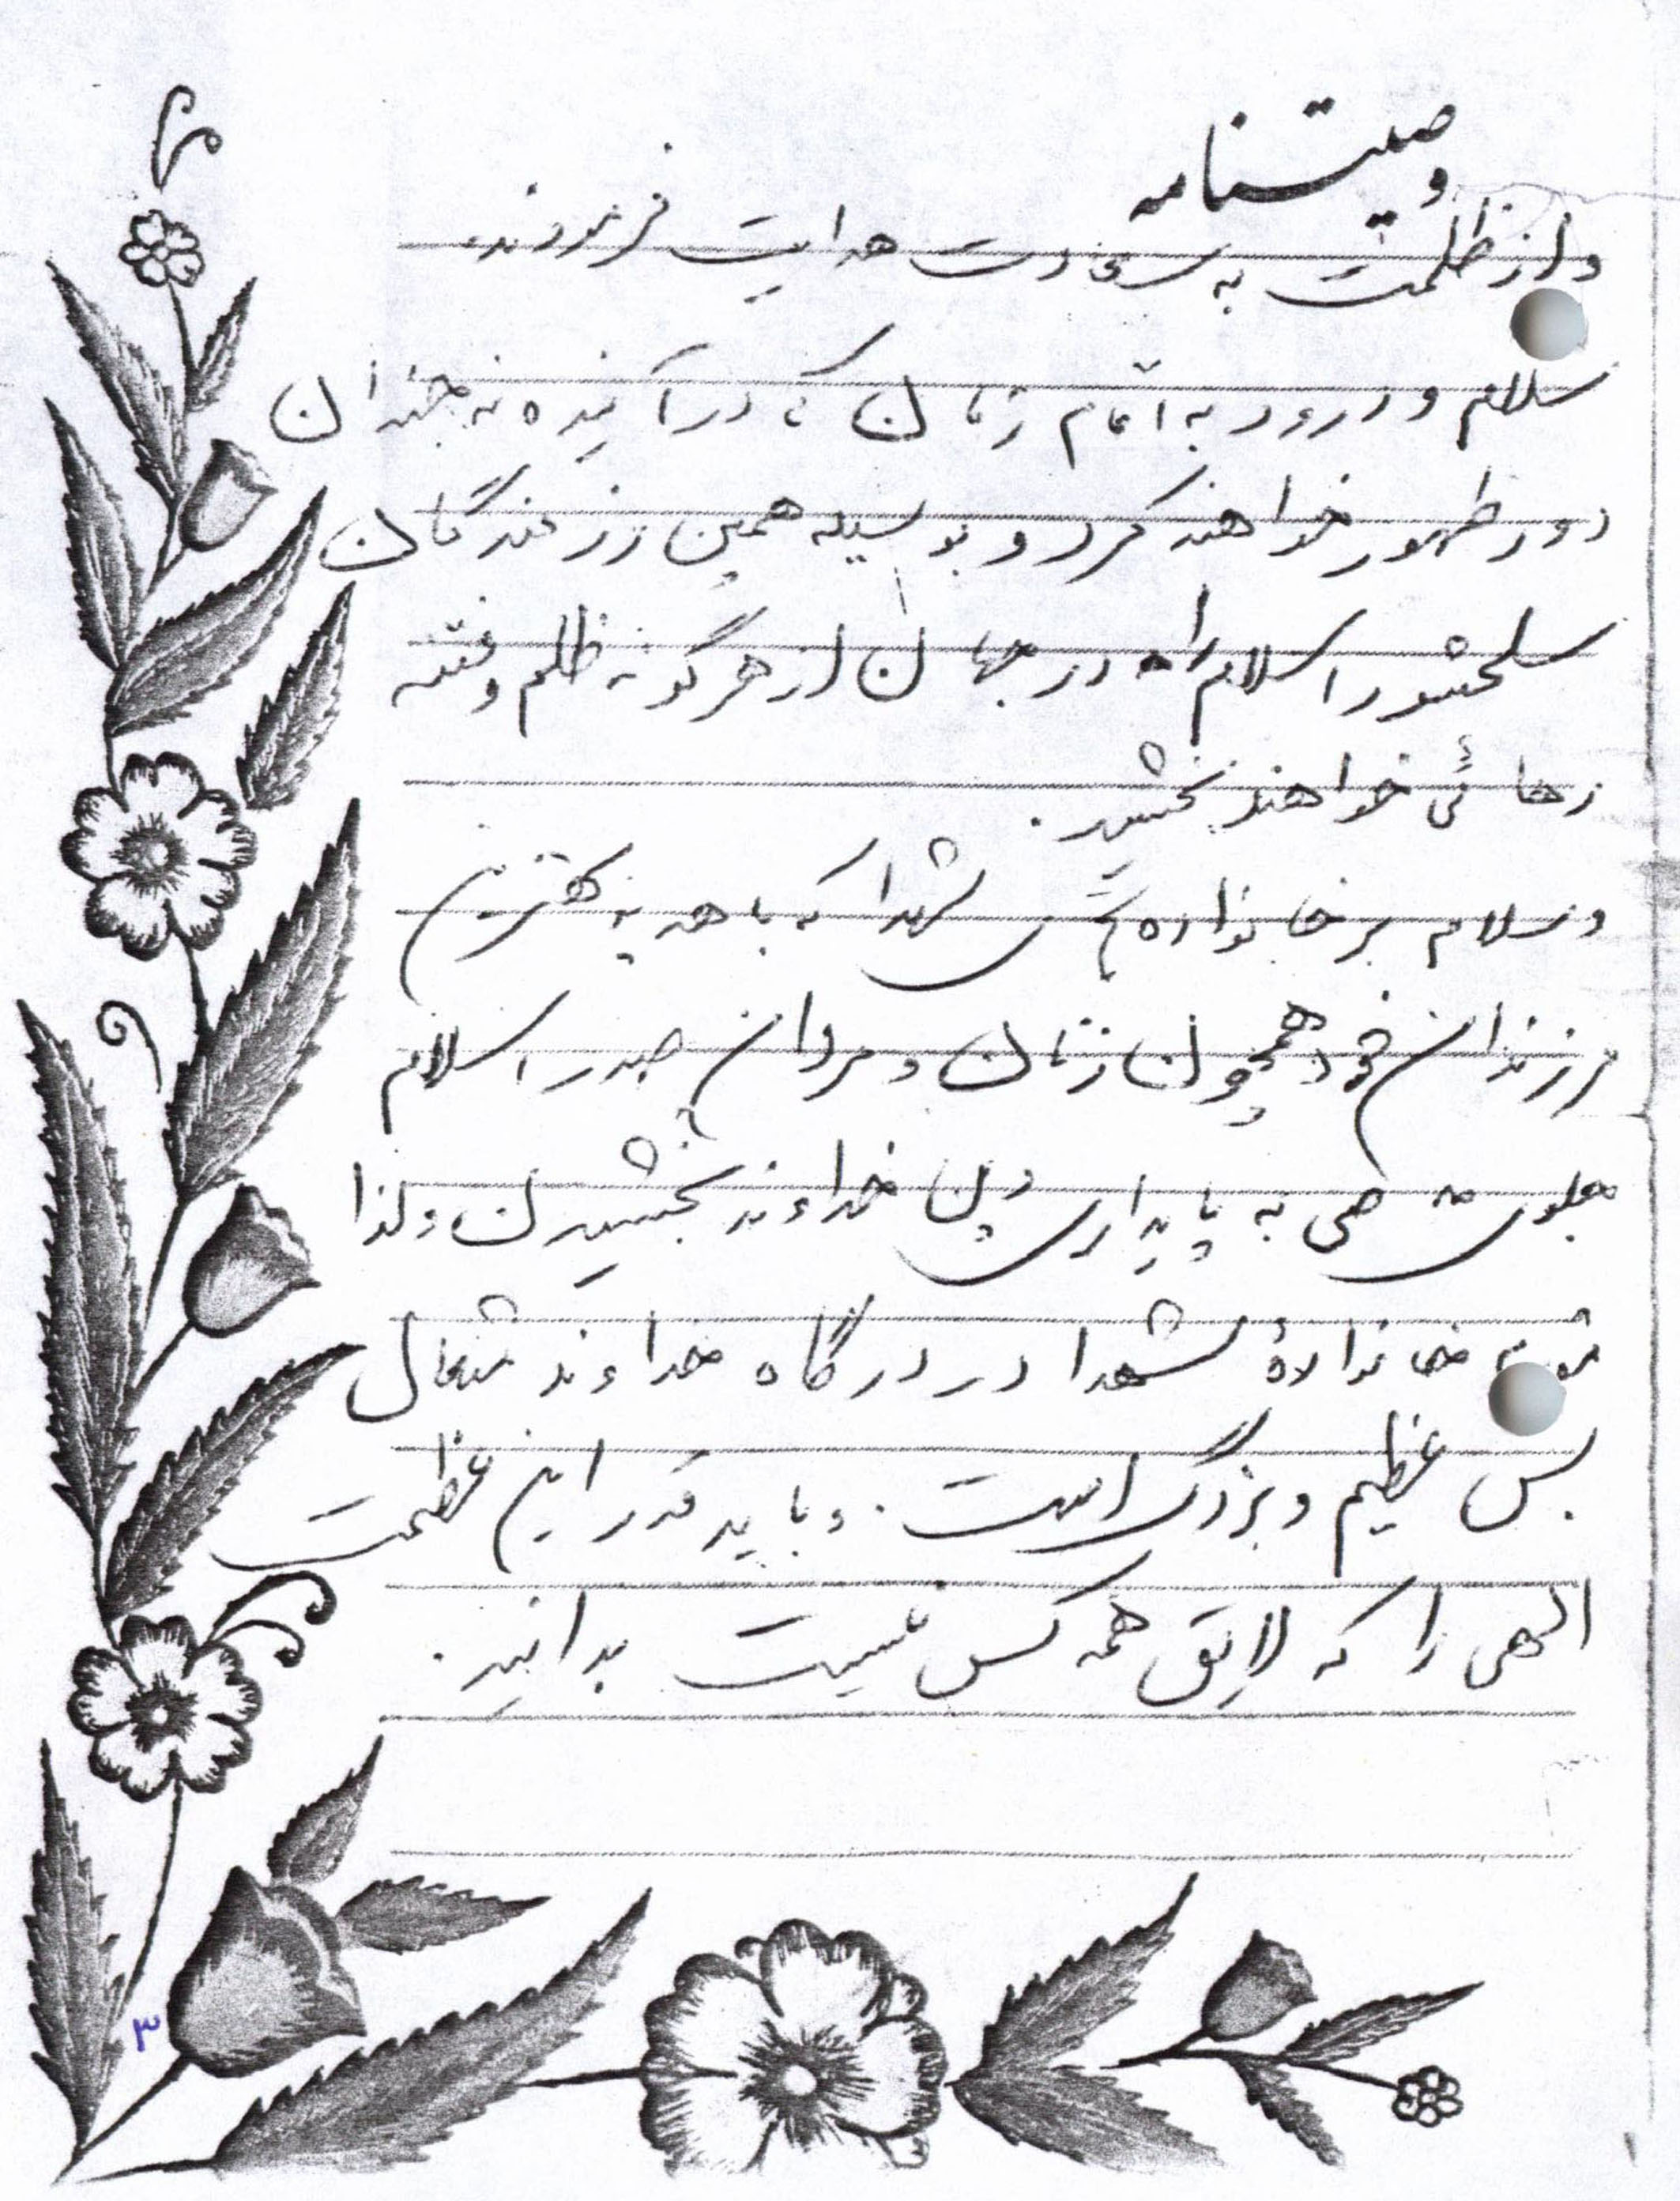 وصیتنامه
و از ظلمت به سعادت هدایت فرمودند.
سلام و درود به امام زمان که در آینده نه چندان
دور ظهور خواهند کرد و بوسیله همین رزمندگان
سلحشور اسلام در جهان از هرگونه ظلم و فتنه
رهائی خواهند بخشید.
و سلام بر خانواده شهدا که با هدیه بهترین
فرزندان خود همچون زنان و مردان صدر اسلام
به پایداری دین خداوند بخشیدن ولذا
خانوادهٔ شهدا در درگاه خداوند متعال
بس عظیم و بزرگ است. و باید قدر این عظمت
الهی را که لایق همه کس نیست بدانید.
۳